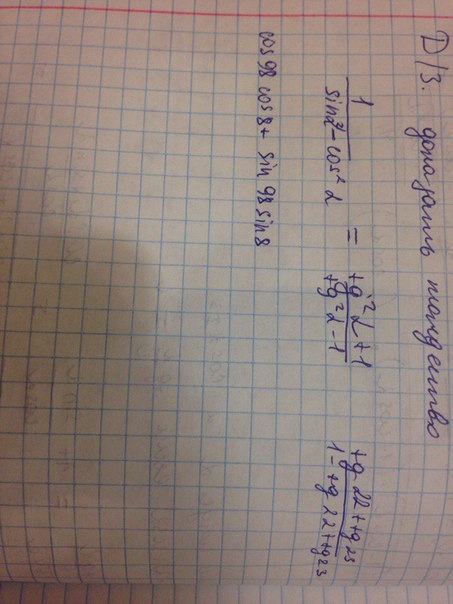 D/З. доказать тождество
1 / (sin²α - cos²α) = (tg²α + 1) / (tg²α - 1)    (tg 22 + tg 23) / (1 - tg 22 + tg 23)
cos 98 cos 8 + sin 98 sin 8